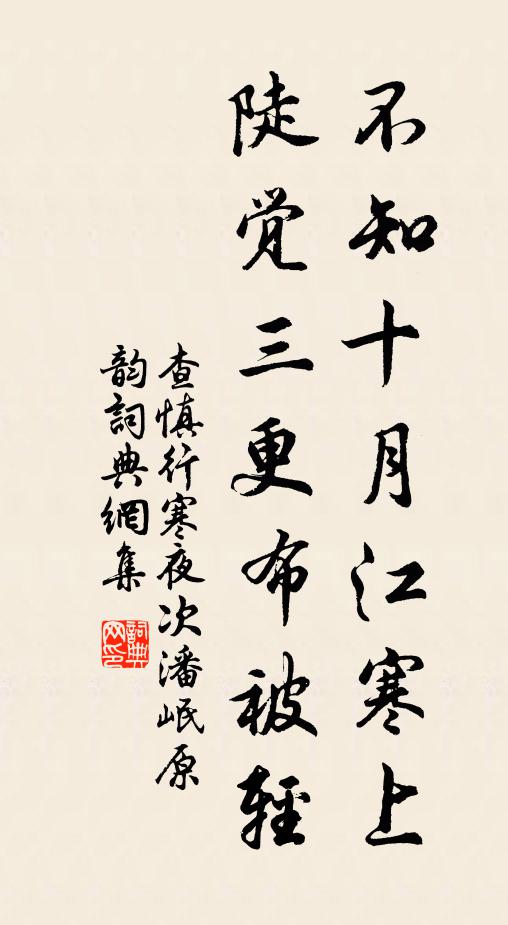 不知十月江寒上
陡觉三更布被輕
查慎行寒夜次潘岷原
韵詞典網集
詞典
网印